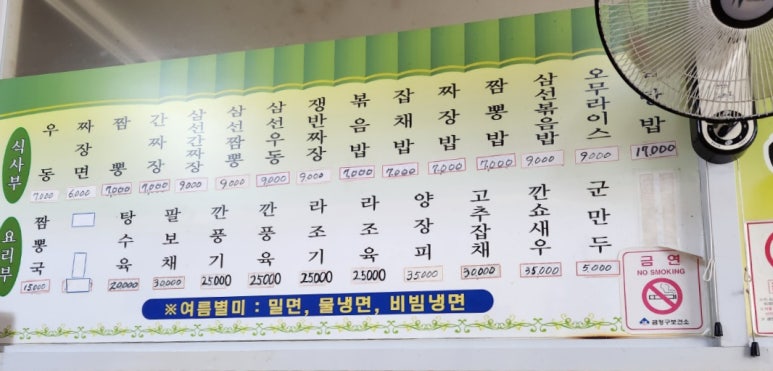 식사부
우동 7,000
짜장면 6,000
짬뽕 7,000
간짜장 7,000
삼선간짜장 9,000
삼선짬뽕 9,000
삼선우동 9,000
쟁반짜장 9,000
볶음밥 7,000
잡채밥 7,000
짜장밥 7,000
짬뽕밥 7,000
삼선볶음밥 9,000
오무라이스 9,000
밥 17,000
요리부
짬뽕국 15000
탕수육 20000
팔보채 30,000
깐풍기 25000
깐풍육 25000
라조기 25000
라조육 25000
양장피 35,000
고추잡채 30000
깐쇼새우 35,000
군만두 5,000
※여름별미 : 밀면, 물냉면, 비빔냉면
금연
NO SMOKING
금정구보건소